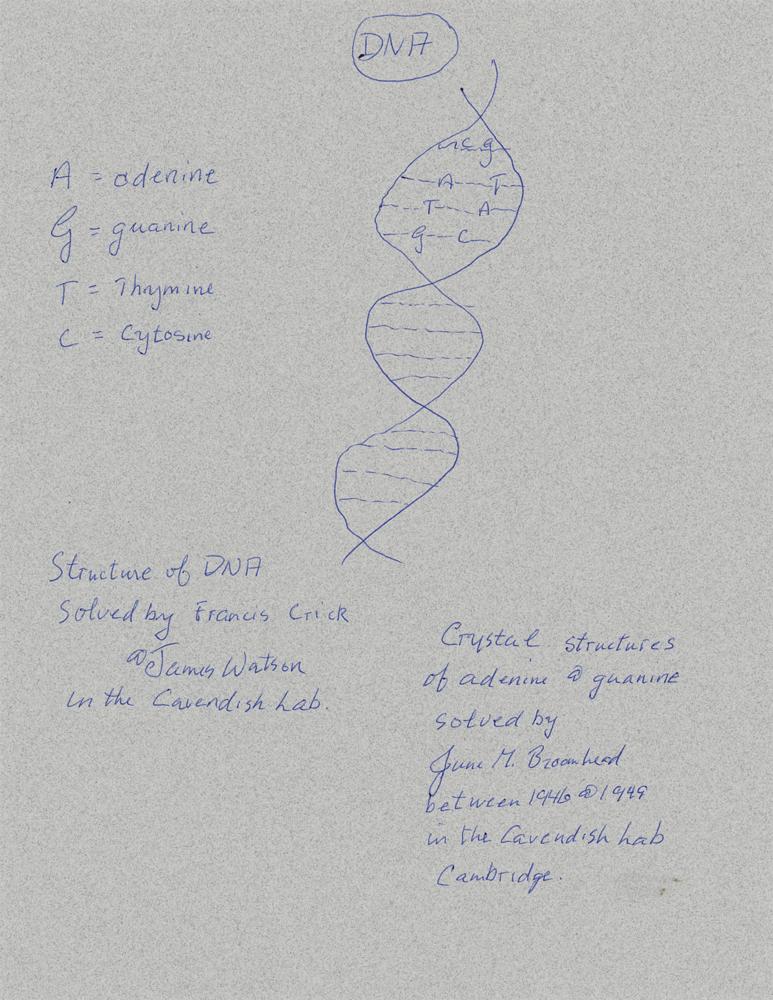 DNA
c g
A T
T A
G C
A = adenine
G = guanine
T = Thymine
C = Cytosine
Structure of DNA
Solved by Francis Crick
@ James Watson
in the Cavendish Lab.
Crystal structures
of adenine @ guanine
solved by
June M. Broomhead
between 1946 @ 1949
in the Cavendish Lab
Cambridge.